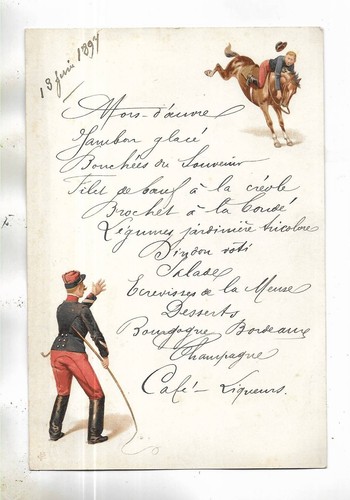 13 Juin 1897
Hors-d'œuvre
Jambon glacé
Bouchées du Souvenir
Filet de bœuf à la créole
Brochet à la Condé
Légumes jardinière tricolore
Dindon rôti
Salade
Ecrevisses de la Meuse
Desserts
Bourgogne Bordeaux
Champagne
Café - Liqueurs.